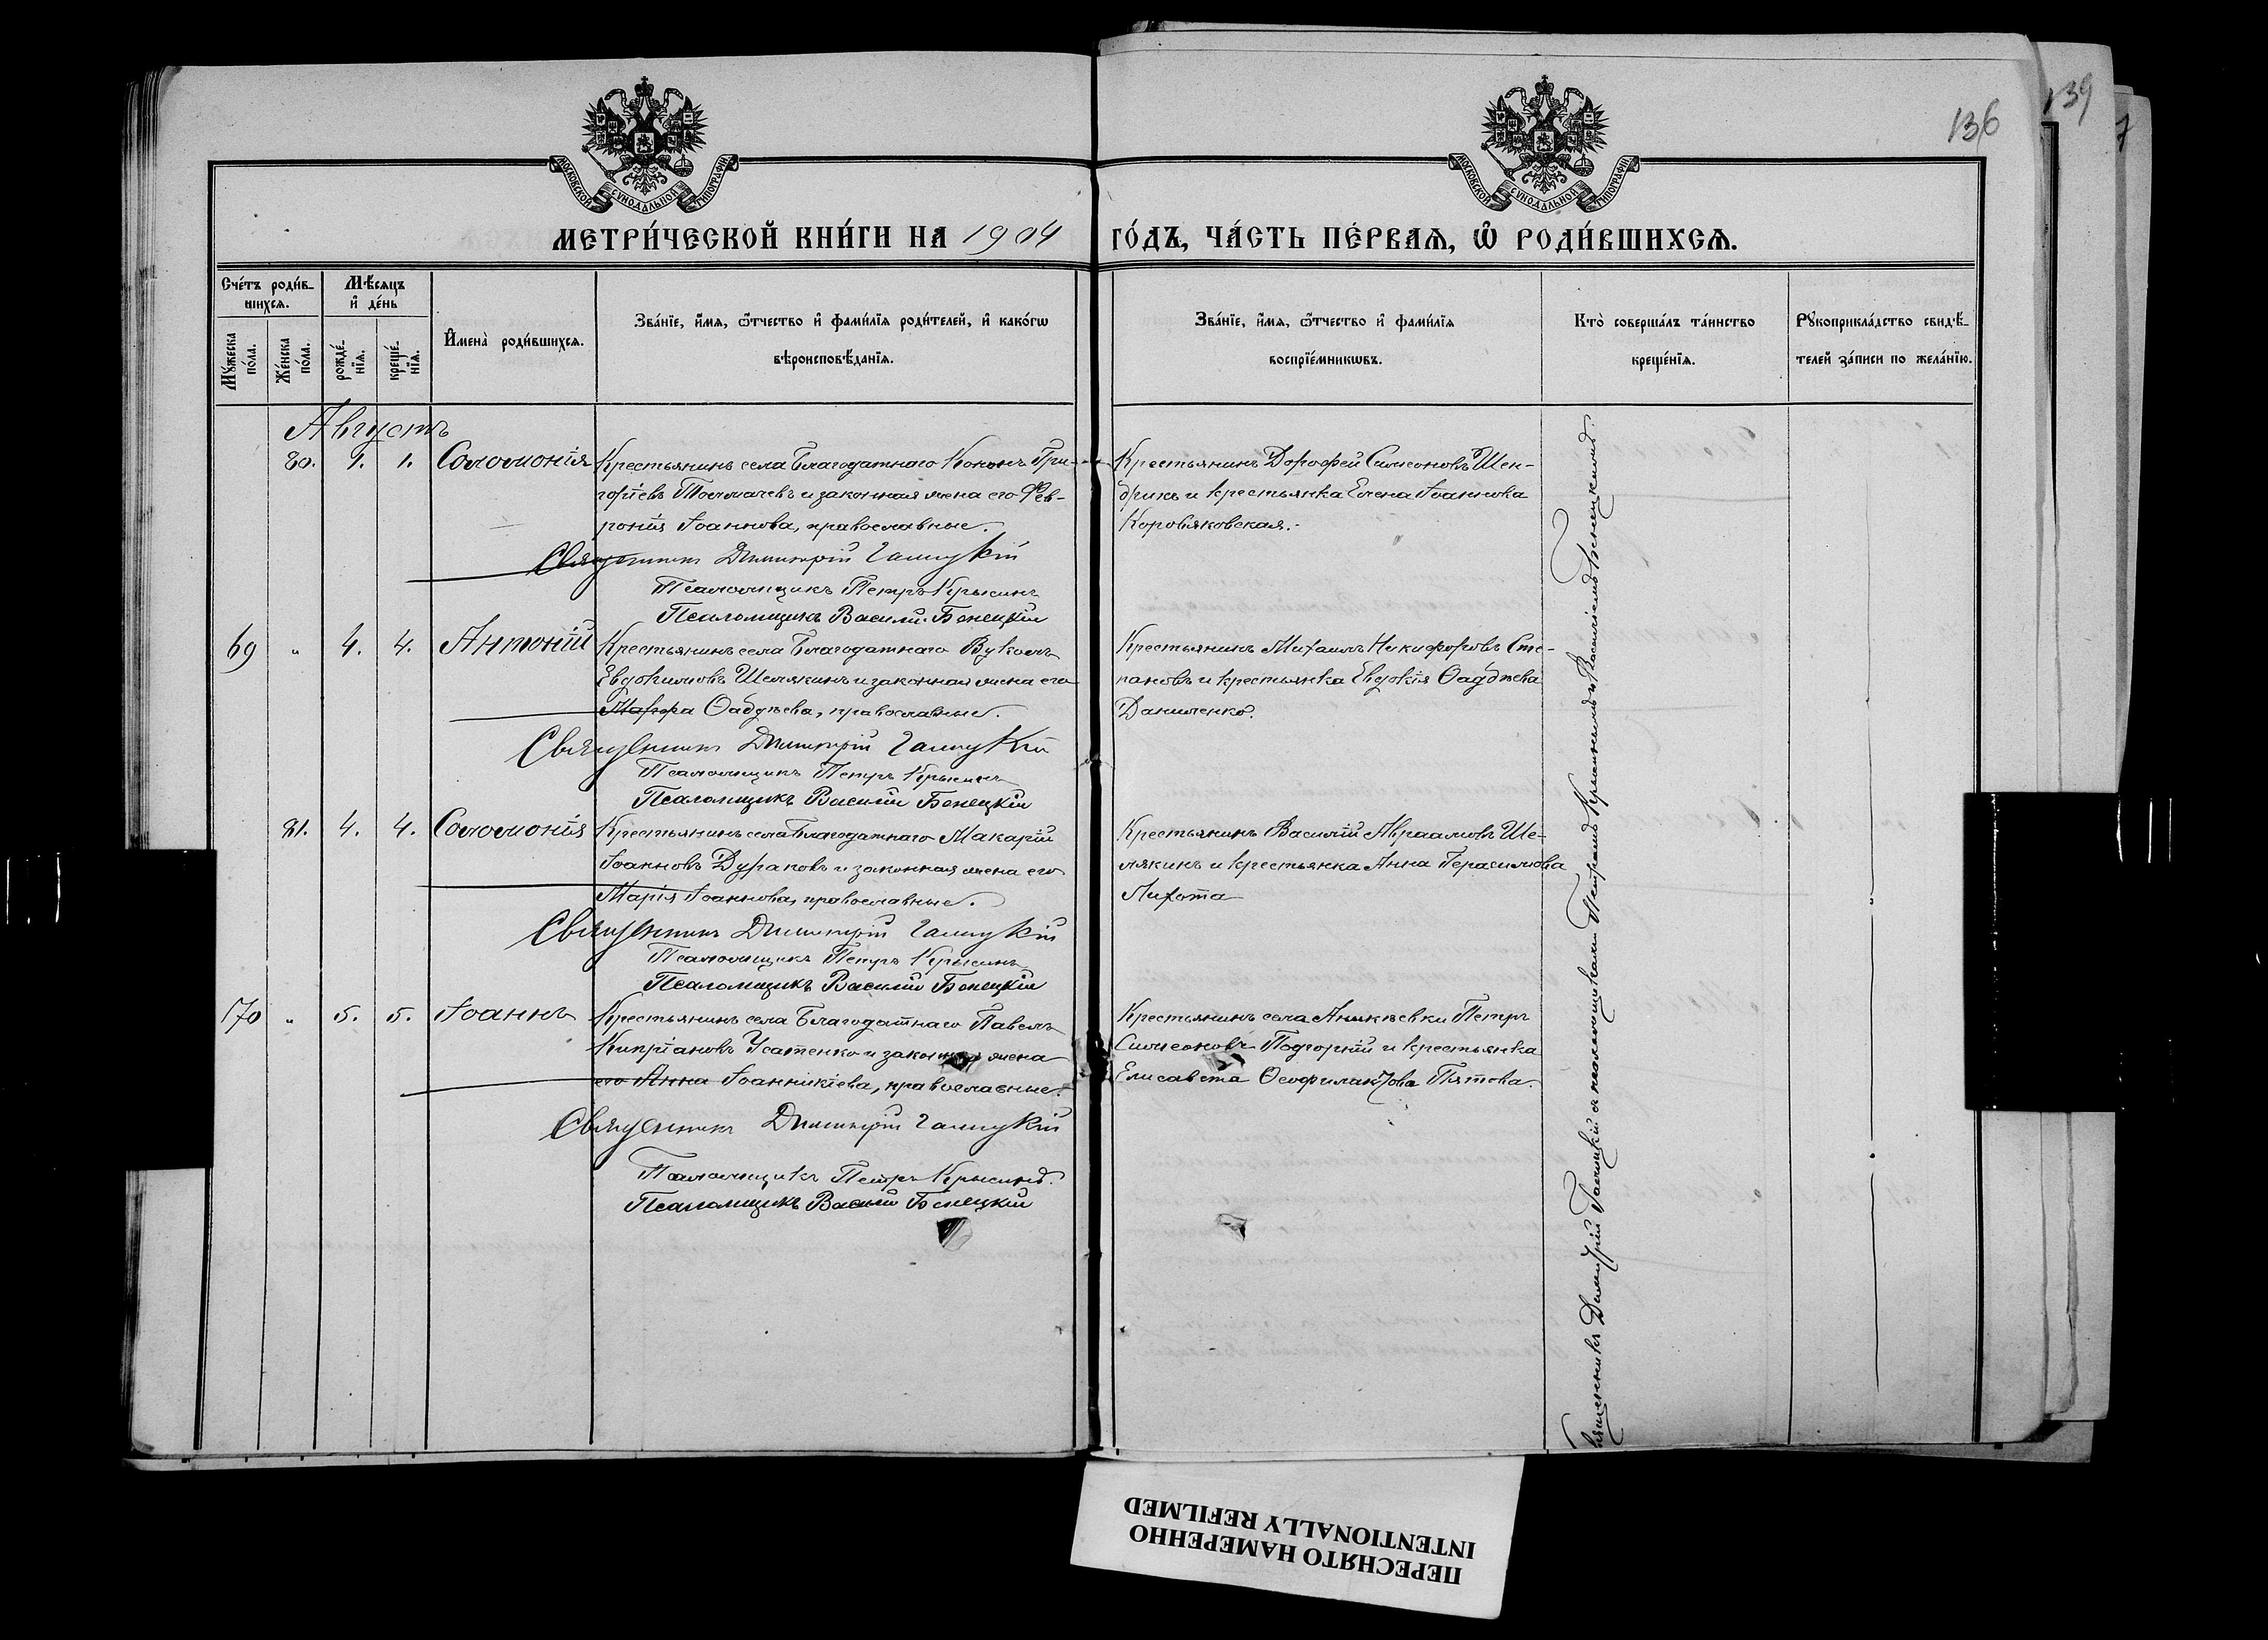 136
139
МОСКОВСКОЙ СѴНОДАЛЬНОЙ ТИПОГРАФІИ
МОСКОВСКОЙ СѴНОДАЛЬНОЙ ТИПОГРАФІИ
МЕТРИ́ЧЕСКОЙ КНИ́ГИ НА 1904 ГО́ДЪ, ЧА́СТЬ ПЕ́РВАѦ, Ѽ РОДИ́ВШИХСѦ.
Сче́тъ роди́в-
шихсѧ.
Мꙋ́жеска по́ла.
Же́нска по́ла.
Мѣ́сѧцъ
и҆ де́нь
рожде́-
нїѧ.
креще́-
нїѧ.
И҆мена̀ роди́вшихсѧ.
Зва́нїе, и҆́мѧ, ѻ҆́тчество и҆ фами́лїѧ роди́телей, и҆ како́гѡ
вѣроисповѣ́данїѧ.
Зва́нїе, и҆́мѧ, ѻ҆́тчество и҆ фами́лїѧ
воспрїе́мникѡвъ.
Кто̀ соверша́лъ та́инство
креще́нїѧ.
Рꙋкоприкла́дство свидѣ́-
телей за́писи по жела́нїю.
Августъ
80. 1. 1. Соломонія
Крестьянинъ села Благодатнаго Кононъ Гри-
горіевъ Толмачевъ и законная жена его Фев-
ронія Іоаннова, православные.
Священникъ Димитрій Галицкій
Псаломщикъ Петръ Крысинъ
Псаломщикъ Василій Бенецкій
Крестьянинъ Дорофей Симеоновъ Шен-
дрикъ и крестьянка Елена Іоаннова
Коровяковская.
69 " 4. 4. Антоній
Крестьянинъ села Благодатнаго Вуколъ
Евдокимовъ Шелякинъ и законная жена его
Марфа Ѳаддѣева, православные.
Священникъ Димитрій Галицкій
Псаломщикъ Петръ Крысинъ
Псаломщикъ Василій Бенецкій
Крестьянинъ Михаилъ Никифоровъ Сте-
пановъ и крестьянка Евдокія Ѳаддѣева
Даниленко.
81. 4. 4. Соломонія
Крестьянинъ села Благодатнаго Макарій
Іоанновъ Дураковъ и законная жена его
Марія Іоаннова, православные.
Священникъ Димитрій Галицкій
Псаломщикъ Петръ Крысинъ
Псаломщикъ Василій Бенецкій
Крестьянинъ Василій Авраамовъ Ше-
лякинъ и крестьянка Анна Герасимова
Лихота
170 " 5. 5. Іоаннъ
Крестьянинъ села Благодатнаго Павелъ
Кипріановъ Усатенко и законная жена
его Анна Іоанникіева, православные.
Священникъ Димитрій Галицкій
Псаломщикъ Петръ Крысинъ.
Псаломщикъ Василій Бенецкій
Крестьянинъ села Аникѣевки Петръ
Симеоновъ Подгорній и крестьянка
Елисавета Ѳеофилактова Пятова.
Священникъ Димитрій Галицкій и псаломщиками Петромъ Крысинымъ и Василіемъ Бенецкимъ.
ПЕРЕСНЯТО НАМЕРЕННО
INTENTIONALLY REFILMED